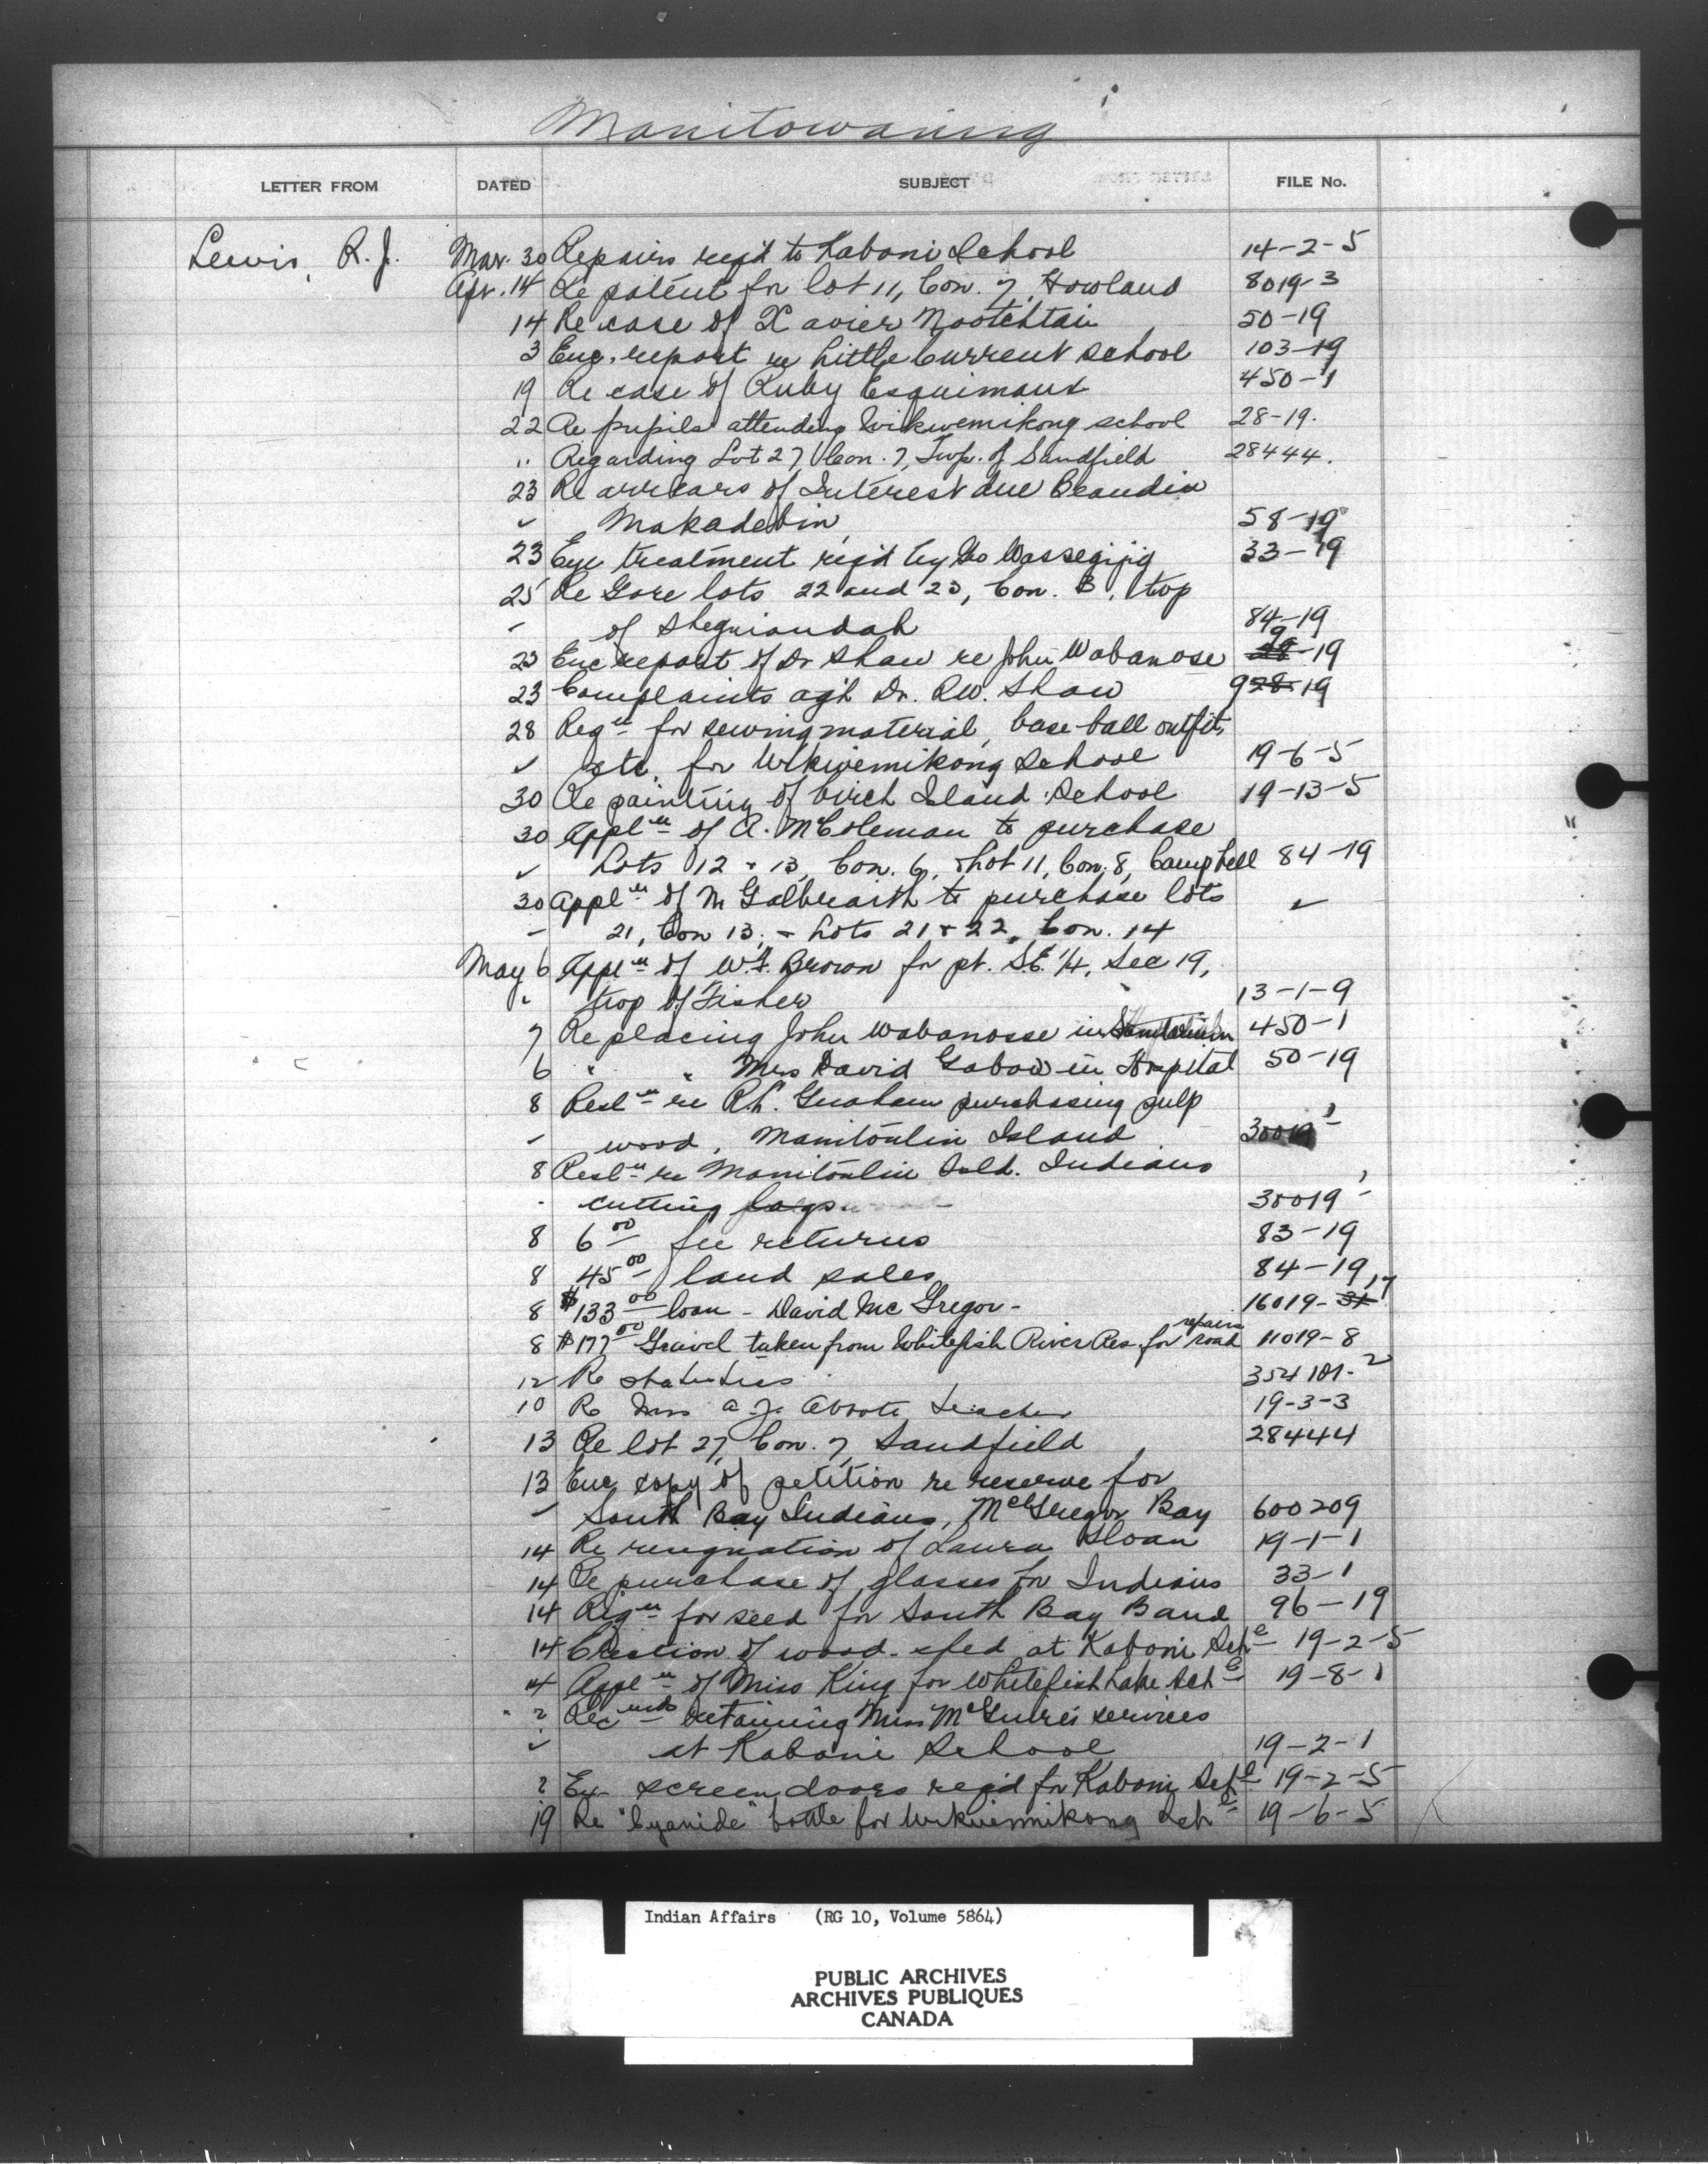 Manitowaning
LETTER FROM DATED SUBJECT FILE No.
Lewis, R. J. Mar. 30 Repairs req'd to Kaboni School 14-2-5
Apr. 14 Re patent for lot 11, Con. 7, Howland 8019-3
14 Re case of Xavier Nootchtai 50-19
3 Enc. report re Little Current school 103-19
19 Re case of Ruby Esquimaux 450-1
22 Re pupils attending Wikwemikong school 28-19.
" Regarding Lot 27, Con. 7, Twp. of Sandfield 28444.
23 Re arrears of Interest due Beaudin
✓ Makadebin 58-19
23 Eye treatment req'd by Geo Wassegijig 33-19
25 Re Gore lots 22 and 23, Con. B, twp
- of Sheguiandah 84-19
23 Enc report of Dr Shaw re John Wabanose 9 28-19
23 Complaints ag'n Dr. R.W. Shaw 928-19
28 Reqn for sewing material, base-ball outfit,
✓ etc. for Wikwemikong School 19-6-5
30 Re painting of Birch Island School 19-13-5
30 Appln of A. McColeman to purchase
✓ Lots 12 & 13, Con. 6, & Lot 11, Con. 8, Campbell 84-19
30 Appln of M Galbraith to purchase lots ✓
- 21, Con 13, & Lots 21 & 22, Con. 14
May 6 Appln of W.F. Brown for pt. S.E. 1/4, Sec 19,
" twp of Fisher 13-1-9
7 Re placing John Wabanosse in Sanitarium 450-1
6 " " Mrs David Gabow in Hospital 50-19
8 Resln re R.L. Graham purchasing pulp
- wood, Manitoulin Island 30019-1
8 Resln re Manitoulin Isld. Indians
- cutting logs 30019-1
8 6.00 fee returns 83-19
8 45.00 land sales 84-19
8 $133.00 loan - David McGregor - 16019-31 17
8 $177.00 Gravel taken from Whitefish River Res. for repairs road 11019-8
12 Re statistics 354101-2
10 Re Miss A. J. teacher 19-3-3
13 Re lot 27, Con. 7, Sandfield 28444
13 Enc copy of petition re reserve for
- South Bay Indians, McGregor Bay 600209
14 Re resignation of Laura Sloan 19-1-1
14 Re purchase of glasses for Indians 33-1
14 Reqn for seed for South Bay Band 96-19
14 Erection of wood-shed at Kaboni Schl 19-2-5
14 Appln of Miss King for Whitefish Lake Schl 19-8-1
? Recmds retaining Miss McGuire's services
✓ at Kaboni School 19-2-1
? screen doors req'd for Kaboni Schl 19-2-5
19 Re "Cyanide" bottle for Wikwemikong Schl 19-6-5
Indian Affairs (RG 10, Volume 5864)
PUBLIC ARCHIVES
ARCHIVES PUBLIQUES
CANADA